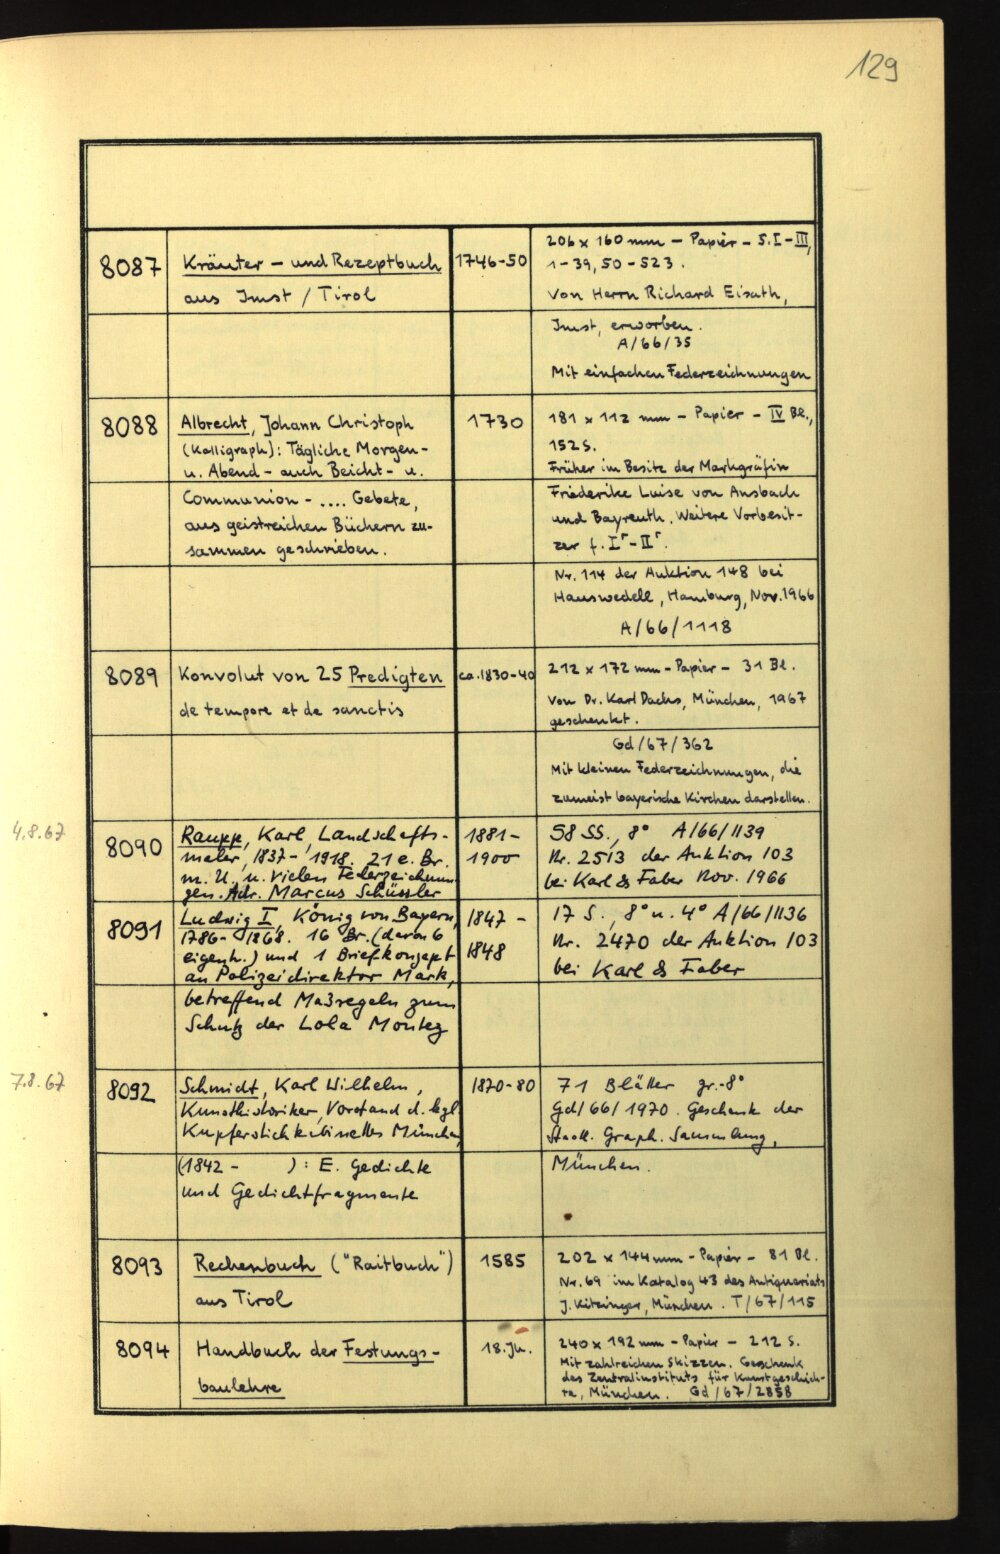 129
8087
Kräuter- und Rezeptbuch
aus Imst / Tirol
1746-50
206 x 160 mm - Papier - S. I-III,
1-39, 50-523.
Von Herrn Richard Eisath,
Imst, erworben.
A/66/35
Mit einfachen Federzeichnungen
8088
Albrecht, Johann Christoph
(Kalligraph): Tägliche Morgen-
u. Abend- auch Beicht- u.
Communion- .... Gebete,
aus geistreichen Büchern zu-
sammen geschrieben.
1730
181 x 112 mm - Papier - IV Bl.,
152 S.
Früher im Besitz der Markgräfin
Friederike Luise von Ansbach
und Bayreuth. Weitere Vorbesit-
zer f. Iʳ-IIʳ.
Nr. 114 der Auktion 148 bei
Hauswedell, Hamburg, Nov. 1966
A/66/1118
8089
Konvolut von 25 Predigten
de tempore et de sanctis
ca. 1830-40
212 x 172 mm - Papier - 31 Bl.
Von Dr. Karl Dachs, München, 1967
geschenkt.
Gd/67/362
Mit kleinen Federzeichnungen, die
zumeist bayerische Kirchen darstellen.
4.8.67
8090
Raupp, Karl, Landschafts-
maler, 1837-1918. 21 e. Br.
m. U. u. vielen Federzeichnun-
gen. Adr. Marcus Schüssler
1881-
1900
58 SS., 8° A/66/1139
Nr. 2513 der Auktion 103
bei Karl & Faber Nov. 1966
8091
Ludwig I, König von Bayern,
1786-1868. 16 Br. (davon 6
eigenh.) und 1 Briefkonzept
an Polizeidirektor Mark,
betreffend Maßregeln zum
Schutz der Lola Montez
1847-
1848
17 S., 8° u. 4° A/66/1136
Nr. 2470 der Auktion 103
bei Karl & Faber
7.8.67
8092
Schmidt, Karl Wilhelm,
Kunsthistoriker, Vorstand d. kgl.
Kupferstichkabinettes München,
(1842- ): E. Gedichte
und Gedichtfragmente
1870-80
71 Blätter gr.-8°
Gd/66/1970. Geschenk der
Staatl. Graph. Sammlung,
München.
8093
Rechenbuch ("Raitbuch")
aus Tirol
1585
202 x 144 mm - Papier - 81 Bl.
Nr. 69 im Katalog 43 des Antiquariats
J. Kitzinger, München. T/67/115
8094
Handbuch der Festungs-
baulehre
18. Jh.
240 x 192 mm - Papier - 212 S.
Mit zahlreichen Skizzen. Geschenk
des Zentralinstituts für Kunstgeschich-
te, München. Gd/67/2858